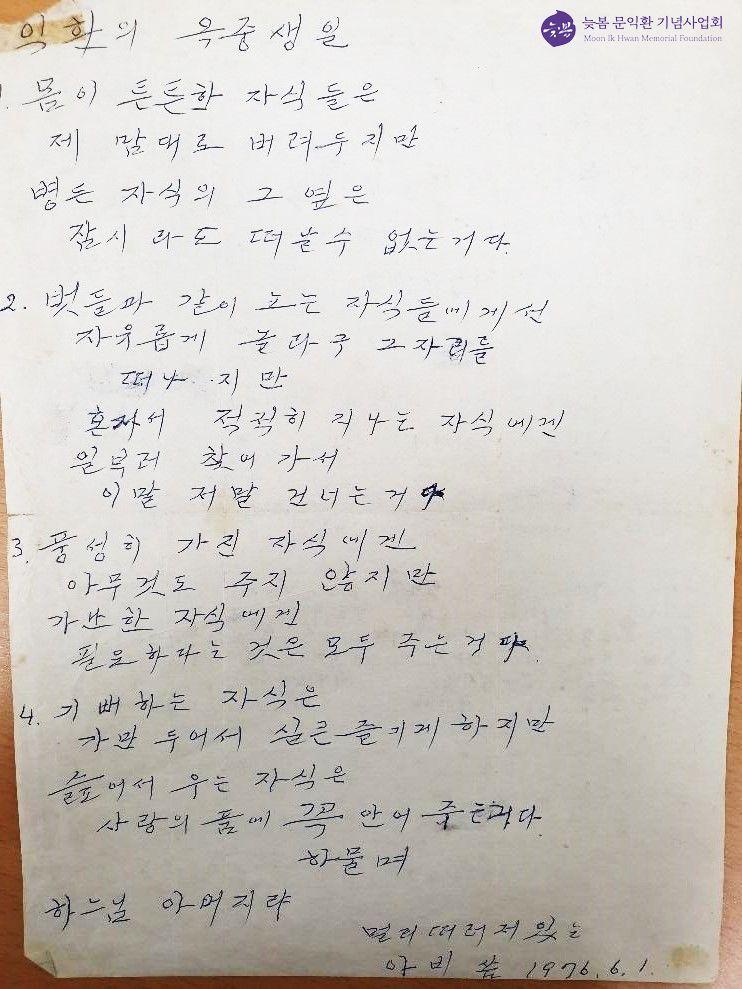 늦봄 문익환 기념사업회
Moon Ik Hwan Memorial Foundation
익환의 옥중생일
1. 몸이 튼튼한 자식들은
제 맘대로 버려두지만
병든 자식의 그 옆은
잠시라도 떠날수 없는거다.
2. 벗들과 같이 노는 자식들에게선
자유롭게 놀라구 그자리를
떠나지만
혼자서 적적히 지나는 자식에겐
일부러 찾어가서
이말 저말 건너는거다
3. 풍성히 가진 자식에겐
아무것도 주지 않지만
가난한 자식에겐
필요하다는 것은 모두 주는거다.
4. 기뻐하는 자식은
가만 두어서 실큰 즐기게 하지만
슬퍼서 우는 자식은
사랑의 품에 꼭 안어 주는거다.
하물며
하느님 아버지랴
멀리 떠러저있는
아비 씀 1976.6.1.